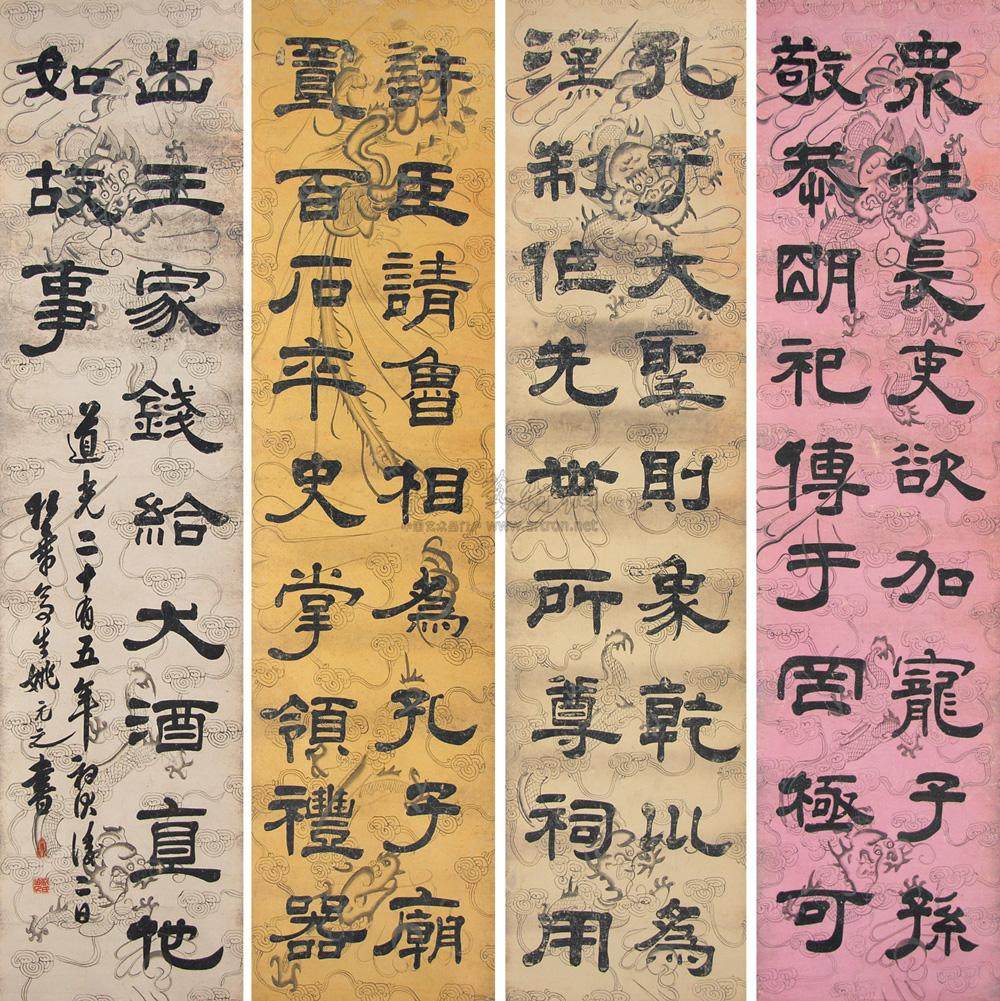 衆牲長吏欲加寵子孫
敬恭朙祀傳于罔極可
孔子大聖則象乾川為
漢制作先世所尊祠用
許臣請魯相為孔子廟
置百石卒史掌領禮器
出王家錢給犬酒直他
如故事
道光二十有五年初伏後二日
竹葉亭生姚元之書
www.artron.net